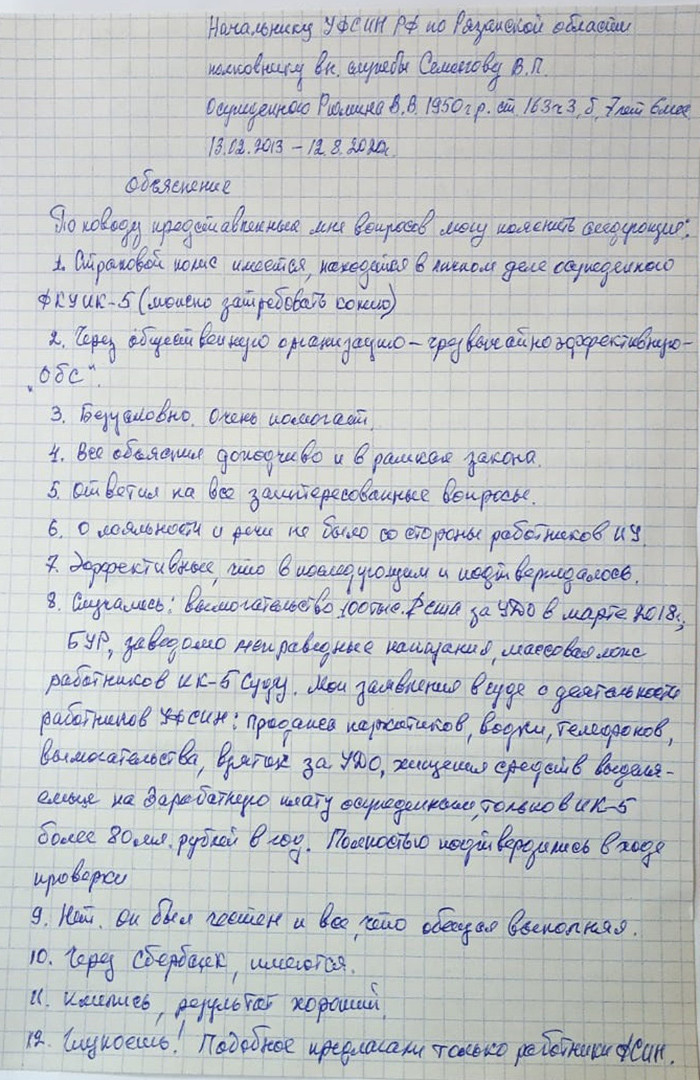 Начальнику УФСИН РФ по Рязанской области
полковнику вн. службы В.П.
Осужденного Рюмина В.В. 1950 г р. ст. 163 ч 3, б, 7 лет 6 мес
13.02.2013 – 12.8.2020г.
Объяснение
По поводу представленных мне вопросов могу пояснить следующие:
1. Страховой полис имеется, находится в личном деле осужденного
ФКУ ИК-5 (можно затребовать копию)
2. Через общественную организацию – чрезвычайно эффективную –
„ОБС“.
3. Безусловно. Очень помогает.
4. Все объяснил доходчиво и в рамках закона.
5. Ответил на все заинтересованные вопросы.
6. О лояльности и речи не было со стороны работников ИУ.
7. Эффективные, что в последующем и подтверждалось.
8. Случалось: вымогательство 100тыс. $ сша за УДО в марте 2018г.,
БУР, заведомо неправедные наказания, массовая ложь
работников ИК-5 Суду. Мои заявления в суде о деятельности
работников УФСИН: Продажа наркотиков, водки, телефонов,
вымогательства, взяток за УДО, хищения средств выделя-
емых на Заработную плату осужденным, только в ИК-5
более 80 мл. рублей в год. Полностью подтвердились в ходе
проверки
9. Нет. Он был честен и все, что обещал выполнял.
10. Через Сбербанк, имеются.
11. результат хороший.
12. Глупость! Подобное предлагали только работники ФСИН.